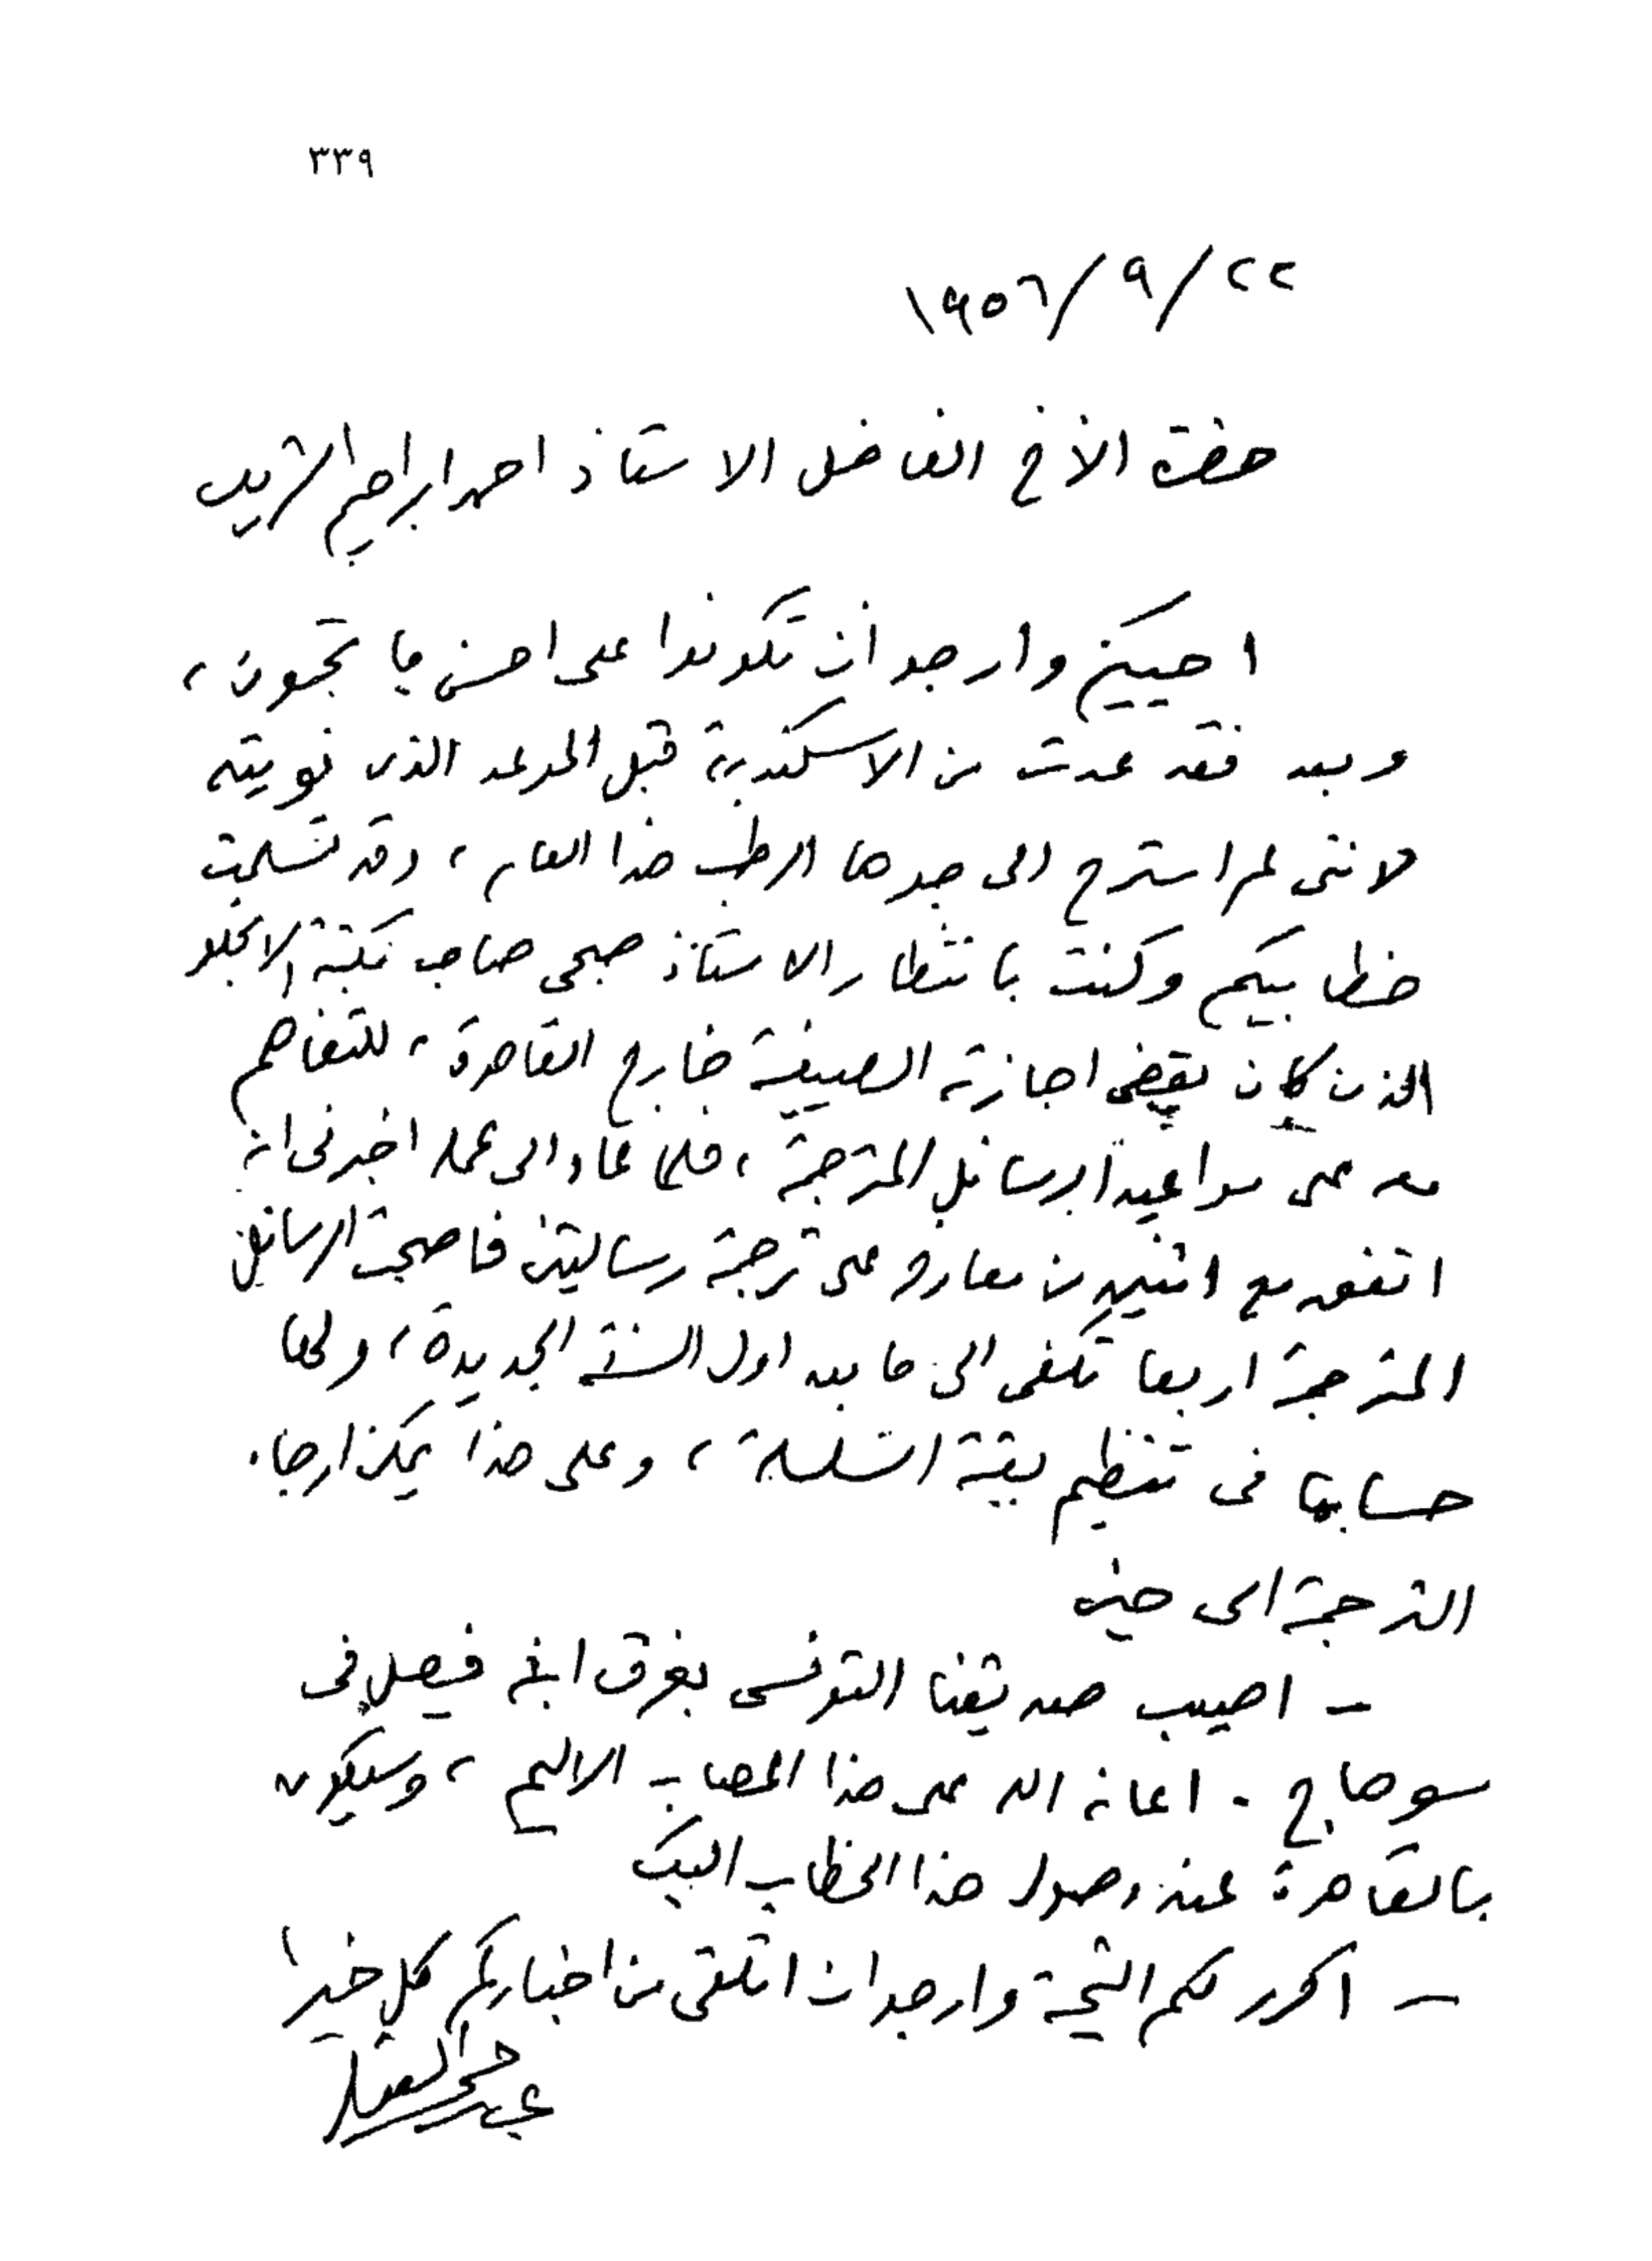 ٣٣٩
٢٢/٩/١٩٥٦
حضرة الأخ الفاضل الاستاذ احمد ابراهيم الشريف
احييكم وارجو ان تكونوا على احسن ما تحبون ،
وبعد فقد عدت من الاسكندرية قبل الموعد الذى نويته
لاننى لم استرح الى جوها الرطب هذا العام ، وقد تسلمت
خطابيكم وكنت بانتظار الاستاذ صبحى صاحب مكتبة الانجلو
الذى كان يقضى اجازته الصيفية خارج القاهرة ، للتفاهم
معه على مواعيد الرسائل المترجمة ، فلما عاد الى عمله اخبرنى انه
اتفق مع اثنين من معارفه على ترجمة رسالتين فاصبحت الرسائل
المترجمة اربعا تكفى الى ما بعد اول السنة الجديدة ، ولها
حسابها فى تنظيم بقية السلسلة ، وعلى هذا يمكن ارجاء
الترجمة الى حين
- اصيب صديقنا التونسى بغرق ابنه فيصل فى
سوهاج . اعانه الله على هذا المصاب الاليم ، وسيكون
بالقاهرة عند وصول هذا الخطاب اليك
- اكرر لكم التحية وارجو ان اتلقى من اخباركم كل خير ،
عباس محمود العقاد